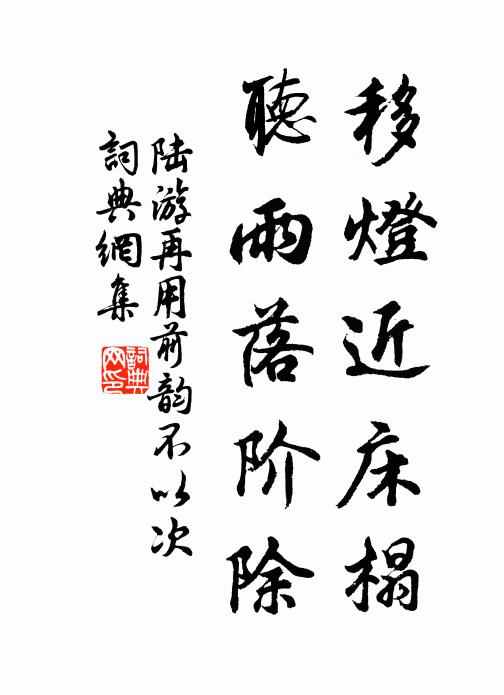 移燈近床榻
聽雨落阶除
陆游再用前韵不以次
詞典網集
詞典网印